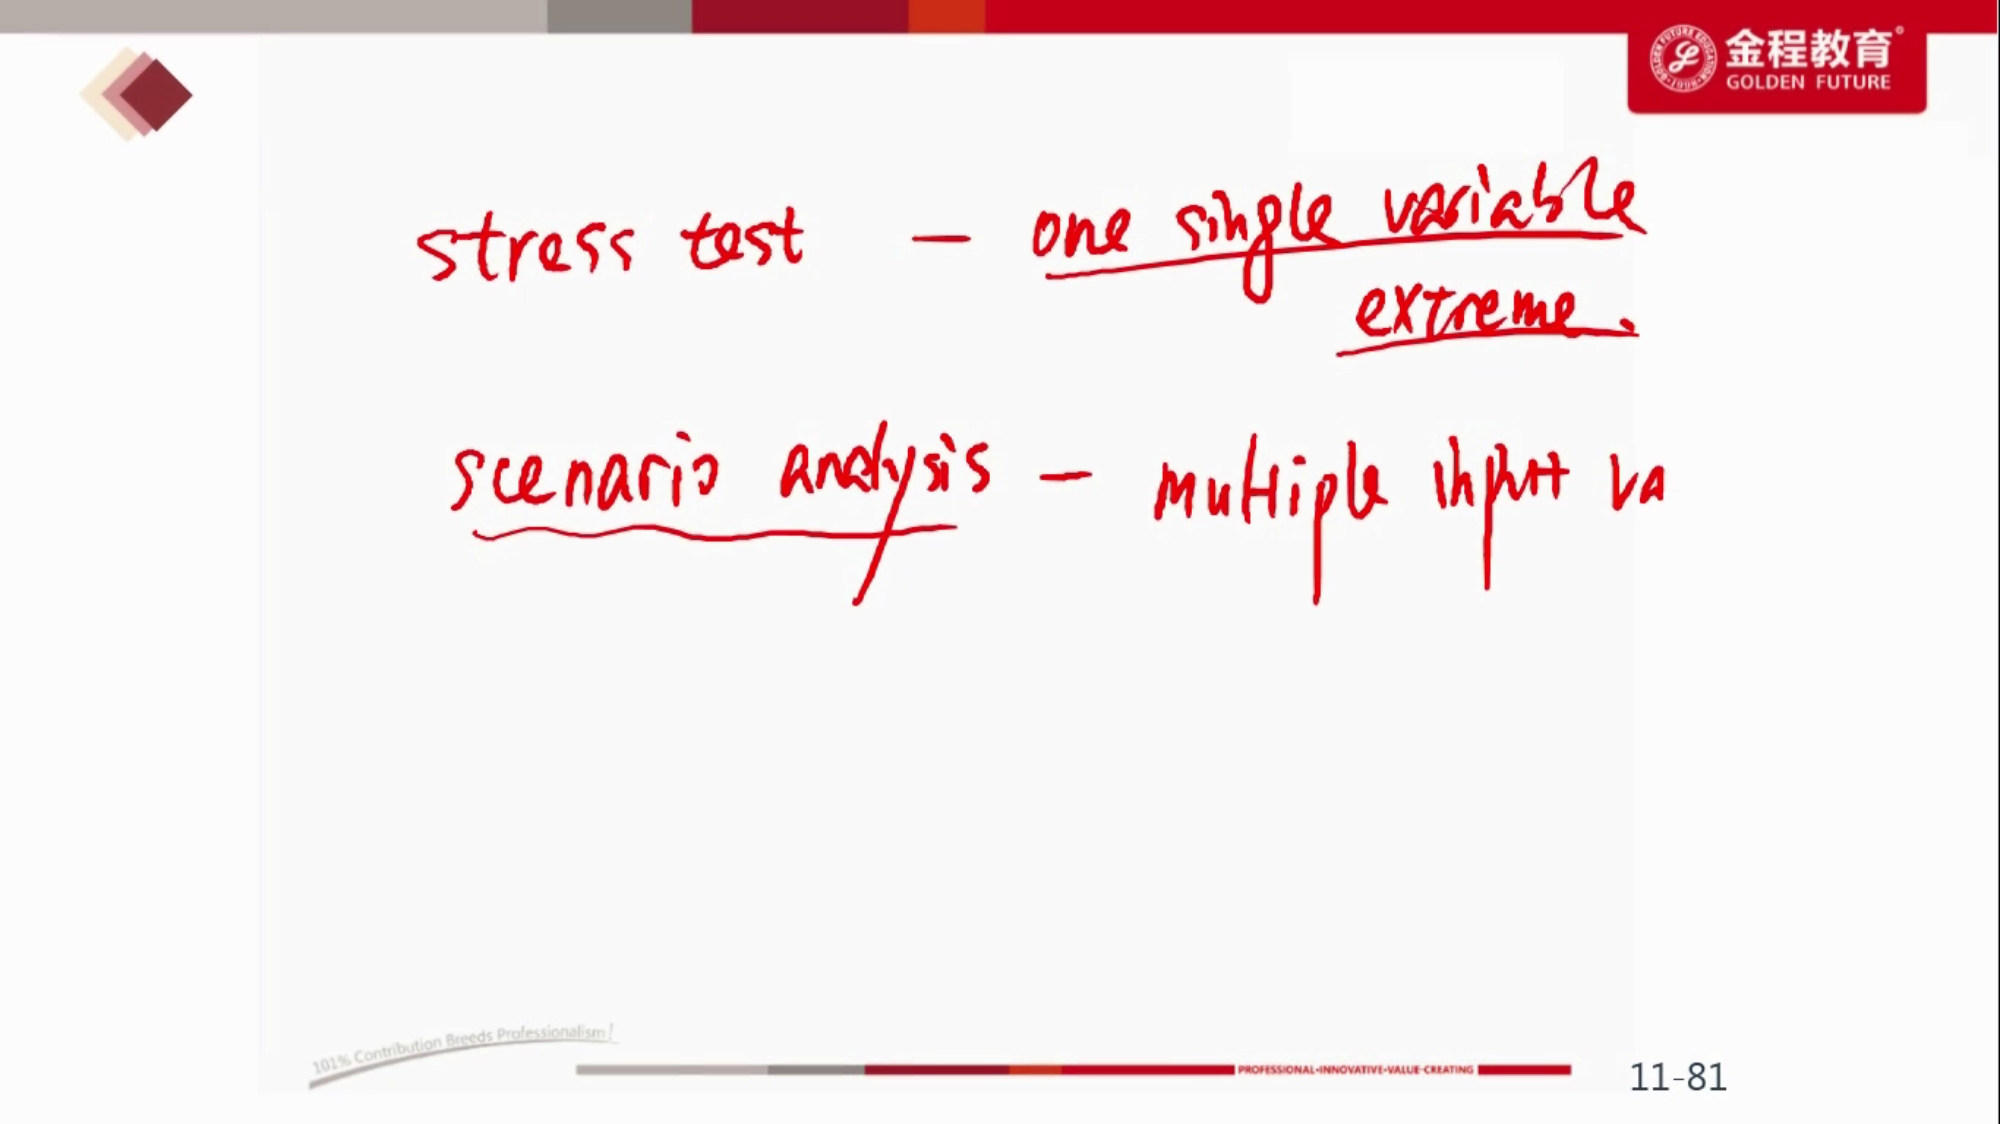 金程教育
GOLDEN FUTURE
stress test — one single variable
extreme.
scenario analysis — multiple input va
101% Contribution Breeds Professionalism!
PROFESSIONAL•INNOVATIVE•VALUE-CREATING
11-81